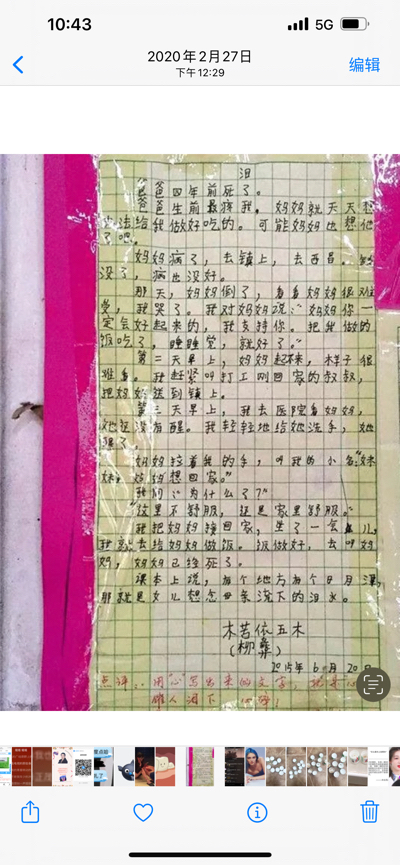 10:43
5G
2020年2月27日
编辑
下午12:29
泪
爸爸四年前死了。
爸爸生前最疼我，妈妈就天天想
办法给我做好吃的。可能妈妈也想他
了吧。
妈妈病了，去镇上，去西昌。钱
没了，病也没好。
那天，妈妈倒了，看看妈妈很难
受，我哭了。我对妈妈说：“妈妈你一
定会好起来的，我支持你。把我做的
饭吃了，睡睡觉，就好了。”
第二天早上，妈妈起不来，样子很
难看。我赶紧叫打工刚回家的叔叔，
把妈妈送到镇上。
第三天早上，我去医院看妈妈，
她还没有醒。我轻轻地给她洗手，她
醒了。
妈妈拉着我的手，叫我的小名：“妹
妹，妈妈想回家。”
我问：“为什么了？”
“这里不舒服，还是家里舒服。”
我把妈妈接回家，坐了一会儿，
我就去给妈妈做饭。饭做好，去叫妈
妈，妈妈已经死了。
课本上说，有个地方有个日月潭，
那就是女儿想念母亲流下的泪水。
木苦依五木
(柳彝)
2015年6月20日
点评：用“心”写出来的文字，
催人泪下